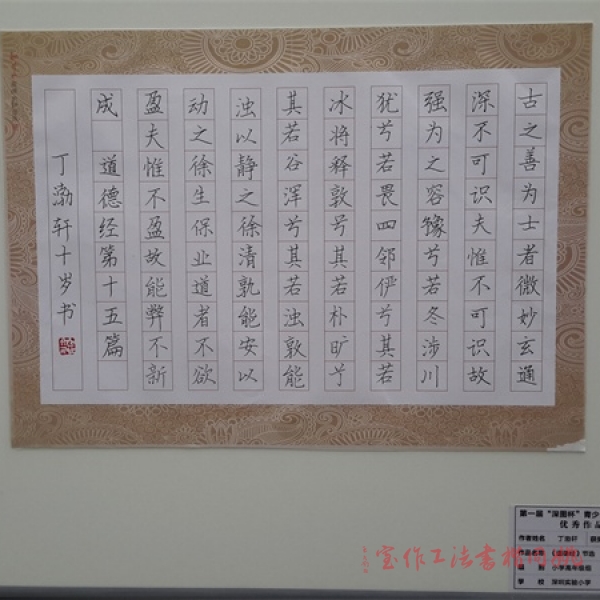 古之善为士者微妙玄通
深不可识夫惟不可识故
强为之容豫兮若冬涉川
犹兮若畏四邻俨兮其若
冰将释敦兮其若朴旷兮
其若谷浑兮其若浊敦能
浊以静之徐清孰能安以
动之徐生保此道者不欲
盈夫惟不盈故能弊不新
成 道德经第十五篇
丁渤轩十岁书
第一届“深图杯”青少
优秀作品
作者姓名 丁渤轩
作品名称 《道德经》节选
组别 小学高年级组
学校 深圳实验小学
室作工法書楷尚